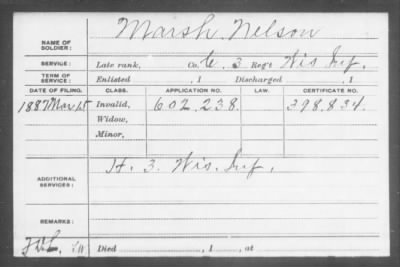 NAME OF SOLDIER: Marsh, Nelson
SERVICE: Late rank, Co. C, 3 Reg't Wis Inf.
TERM OF SERVICE: Enlisted , 1 Discharged , 1
DATE OF FILING. CLASS. APPLICATION NO. LAW. CERTIFICATE NO.
1887 Mar 15 Invalid, 602.238. 398.834.
Widow,
Minor,
ADDITIONAL SERVICES: H. 3. Wis. Inf.
REMARKS:
Died , 1 , at